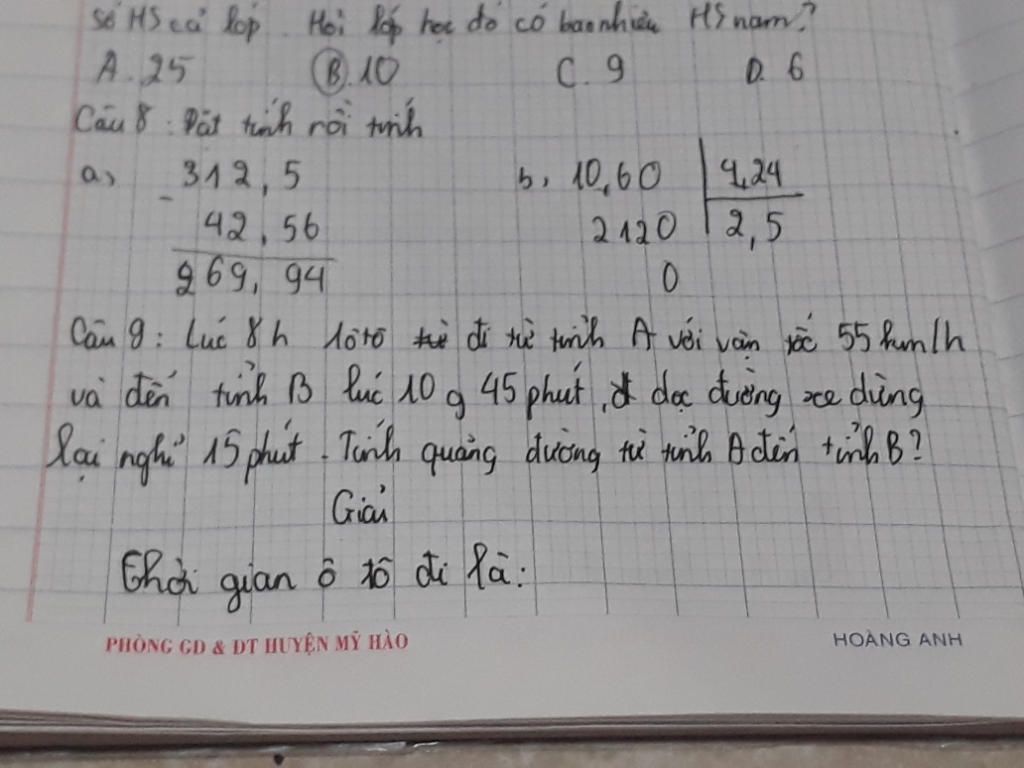 số HS cả lớp. Hỏi lớp học đó có bao nhiêu HS nam?
A. 25 B. 10 C. 9 D. 6
Câu 8: Đặt tính rồi tính
a, 312,5 b, 10,60 4,24
- 42,56 2120 2,5
269,94 0
Câu 9: Lúc 8h 1 ô tô đi từ tỉnh A với vận tốc 55 km/h
và đến tỉnh B lúc 10g 45 phút, dọc đường xe dừng
lại nghỉ 15 phút. Tính quãng đường từ tỉnh A đến tỉnh B?
Giải
Thời gian ô tô đi là:
PHÒNG GD & ĐT HUYỆN MỸ HÀO HOÀNG ANH